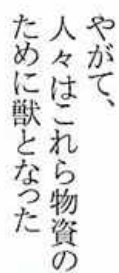 やがて、
人々はこれら物資の
ために獣となった